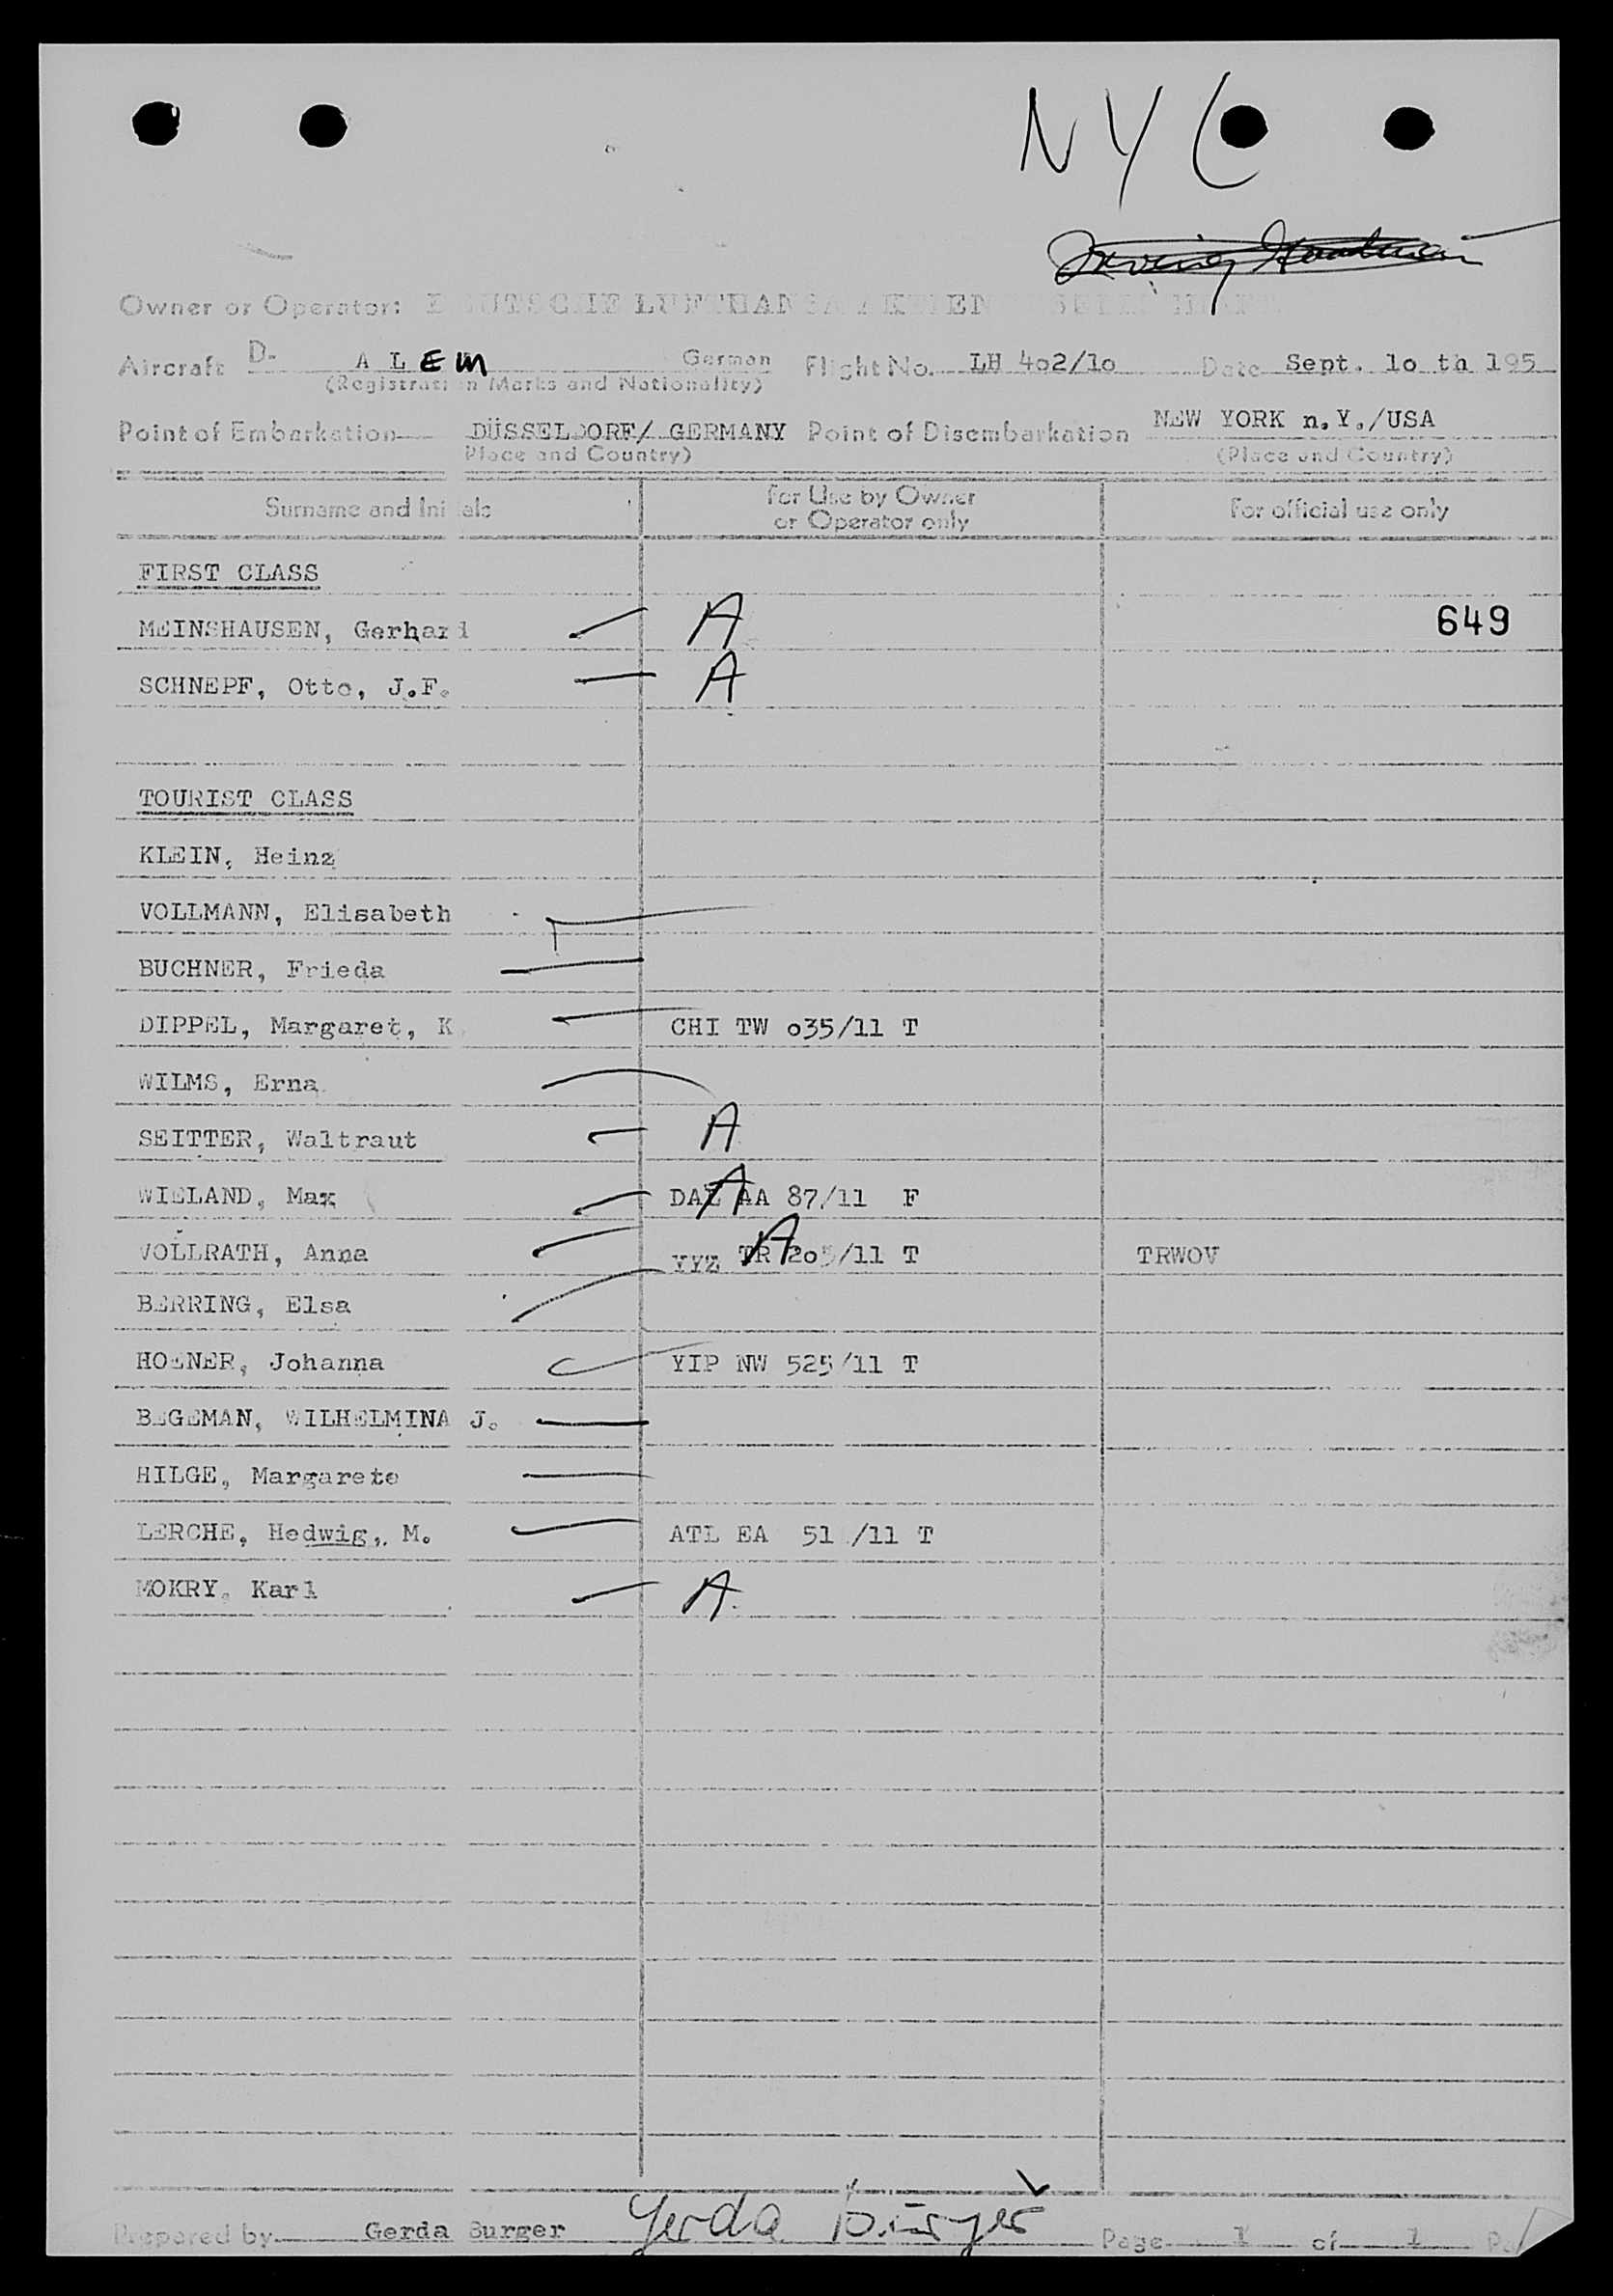 NYC
Owner or Operator: DEUTSCHE LUFTHANSA
Aircraft D- A L E M German Flight No. LH 4o2/1o Date Sept. 1o th 195
(Registration Marks and Nationality)
Point of Embarkation DÜSSELDORF/ GERMANY Point of Disembarkation NEW YORK n.Y./USA
Place and Country) (Place and Country)
Surname and Initials For Use by Owner or Operator only For official use only
FIRST CLASS
649
MEINSHAUSEN, Gerhard A
SCHNEPF, Otto, J.F. A
TOURIST CLASS
KLEIN, Heinz
VOLLMANN, Elisabeth
BUCHNER, Frieda
DIPPEL, Margaret, K CHI TW o35/11 T
WILMS, Erna
SEITTER, Waltraut A
WIELAND, Max DAL AA 87/11 F A
VOLLRATH, Anna YYZ TR 2o5/11 T A TRWOV
BERRING, Elsa
HOENER, Johanna YIP NW 525/11 T
BEGEMAN, WILHELMINA J.
HILGE, Margarete
LERCHE, Hedwig, M. ATL EA 51 /11 T
MOKRY, Karl A
Prepared by Gerda Burger Gerda Burger Page 1 of 1